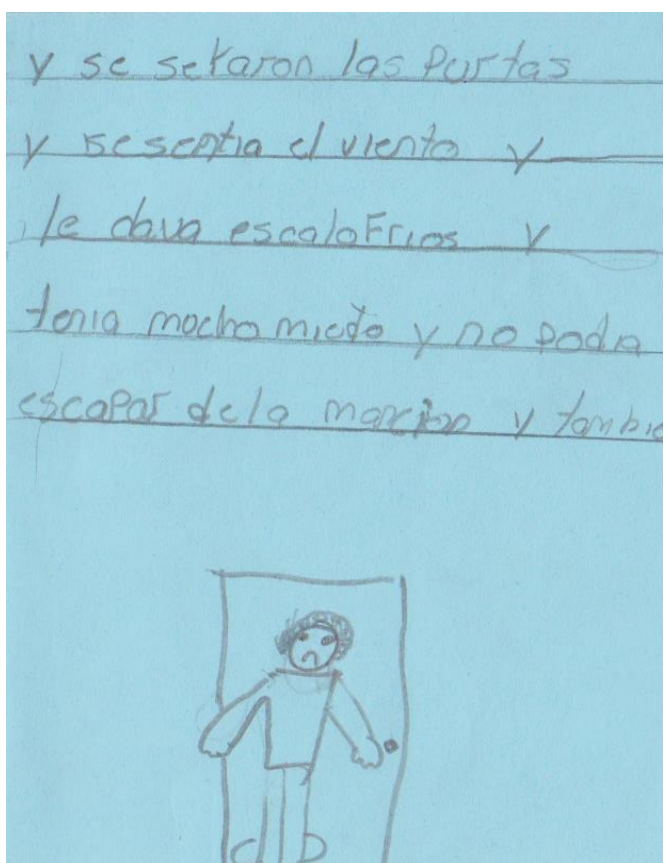 y se seraron las Purtas
y se sentia el viento y
le dava escaloFrios y
tenia mocho miedo y no Podia
escaPar de la mancion y tambie